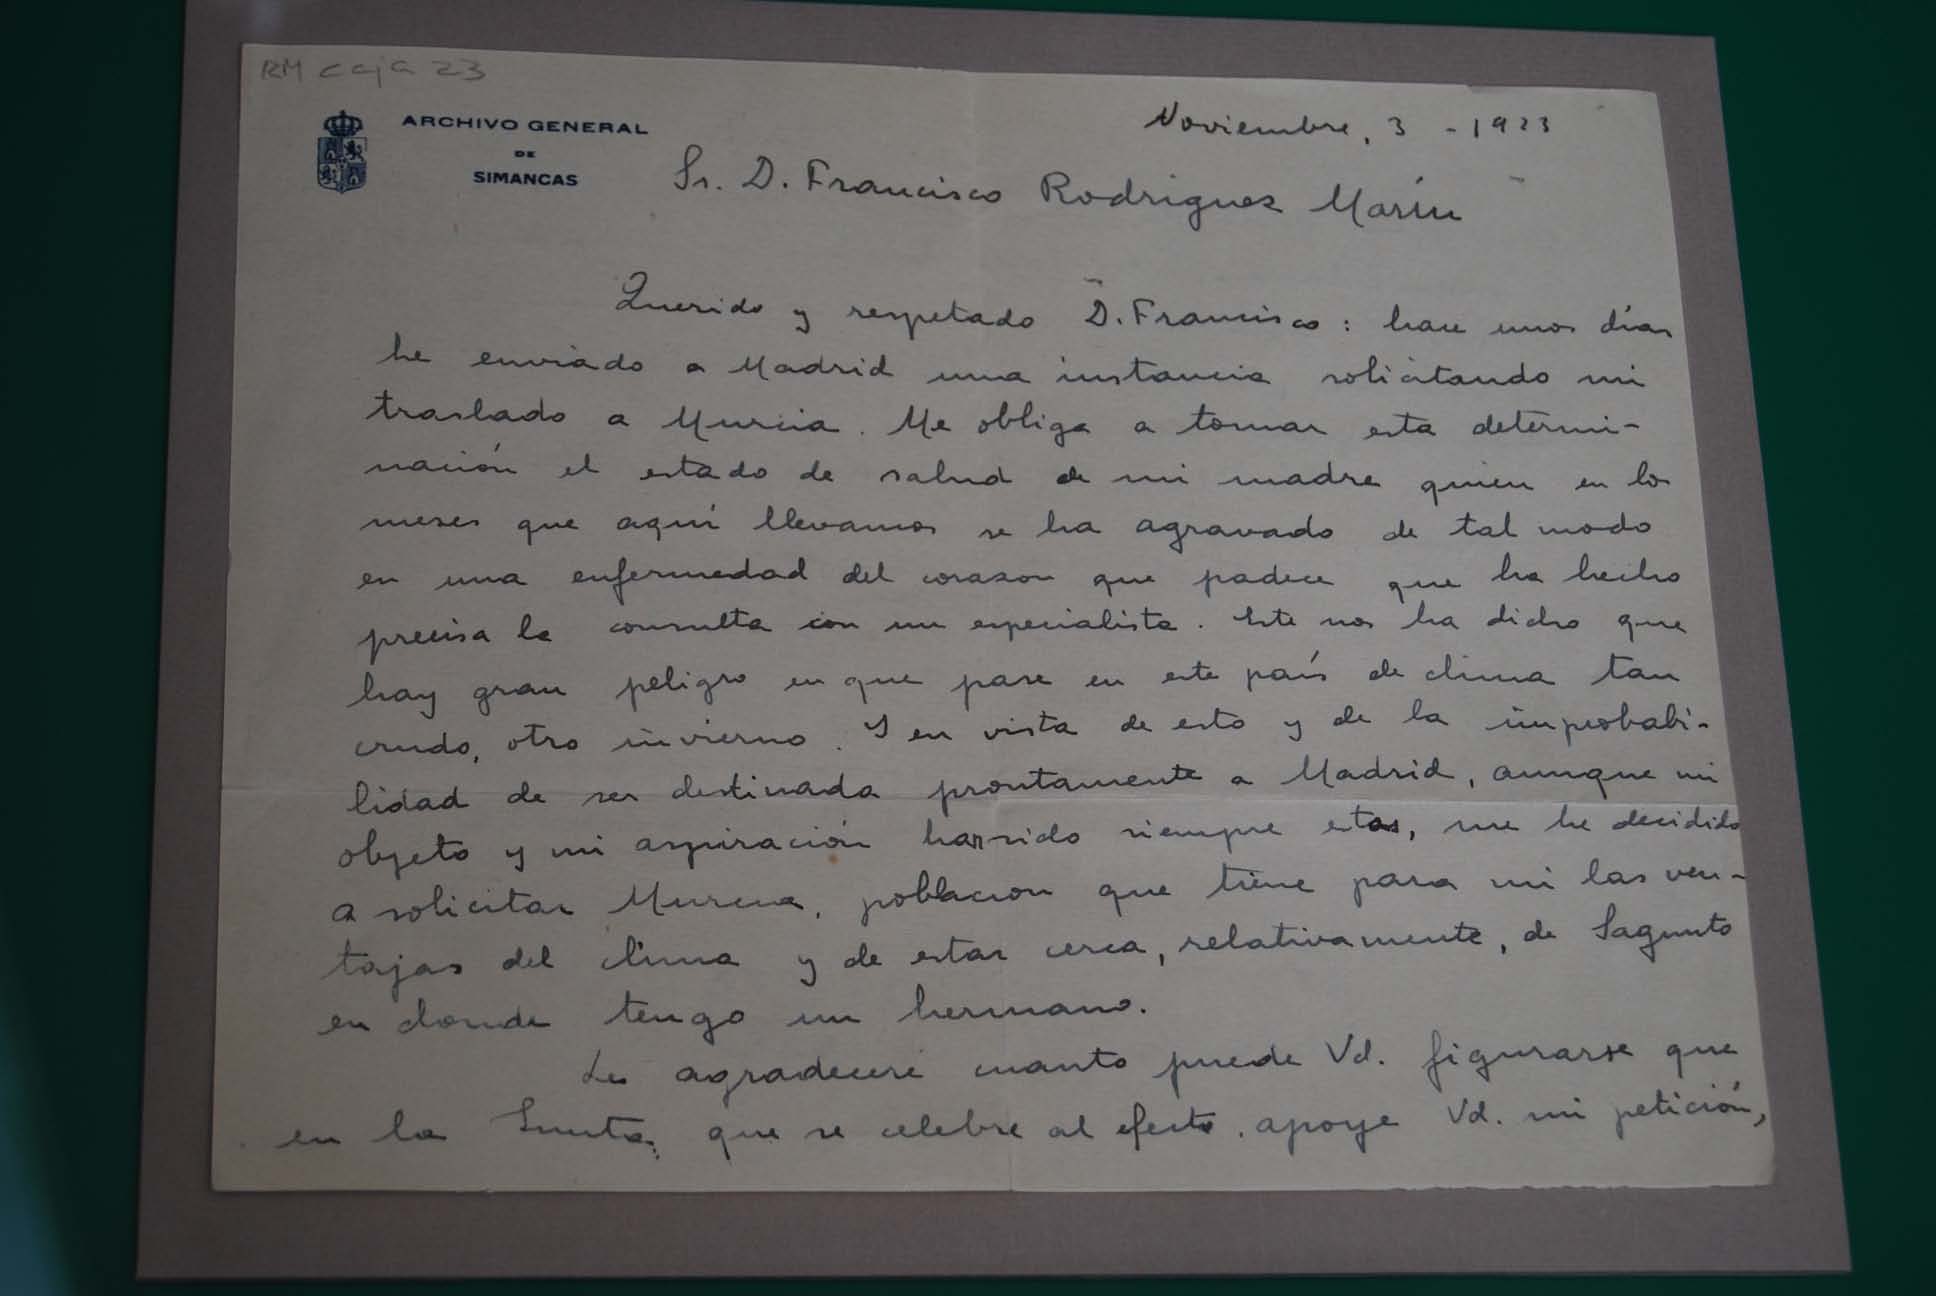 RM caja 23
ARCHIVO GENERAL
DE
SIMANCAS
Noviembre, 3 - 1923
Sr. D. Francisco Rodriguez Marín
Querido y respetado D. Francisco: hace unos días
he enviado a Madrid una instancia solicitando mi
traslado a Murcia. Me obliga a tomar esta determi-
nación el estado de salud de mi madre quien en los
meses que aquí llevamos se ha agravado de tal modo
en una enfermedad del corazon que padece que ha hecho
precisa la consulta con un especialista. Este nos ha dicho que
hay gran peligro en que pase en este país de clima tan
crudo, otro invierno. Y en vista de esto y de la improbabi-
lidad de ser destinada prontamente a Madrid, aunque mi
objeto y mi aspiración han sido siempre estos, me he decidido
a solicitar Murcia, poblacion que tiene para mi las ven-
tajas del clima y de estar cerca, relativamente, de Sagunto
en donde tengo un hermano.
Le agradeceré cuanto puede Vd. figurarse que
en la Junta, que se celebre al efecto, apoye Vd. mi petición,